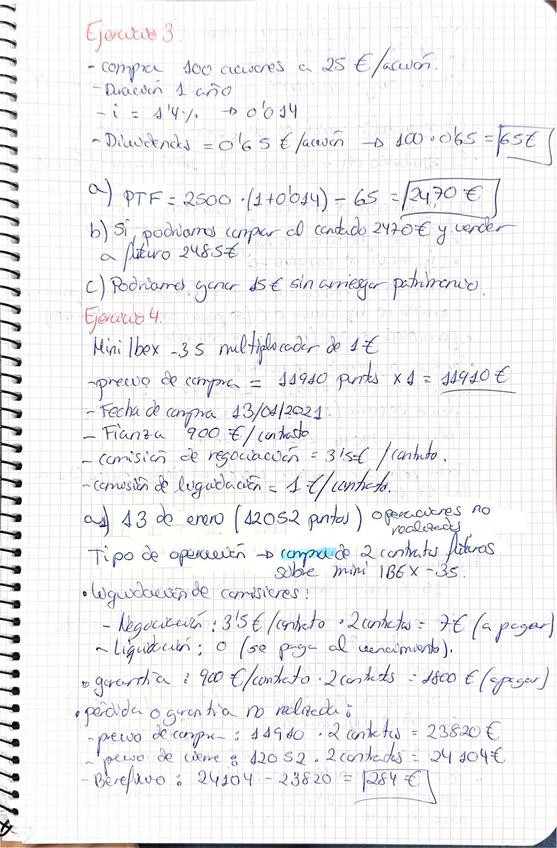 Ejercicio 3
- compra 100 acciones a 25 €/acción.
- Duración 1 año
- i = 1'4% → 0'014
- Dividendos = 0'65 €/acción → 100 · 0'65 = 65€
a) PTF = 2500 · (1+0'014) - 65 = 2470 €
b) Si, podríamos comprar al contado 2470 € y vender
a futuro 2485€.
c) Podríamos ganar 15€ sin arriesgar patrimonio.
Ejercicio 4.
Mini Ibex -35 multiplicador de 1€
- precio de compra = 11910 puntos x 1 = 11910 €
- Fecha de compra 13/01/2021
- Fianza 900 €/contrato
- comisión de negociación = 3'5€ /contrato.
- comisión de liquidación = 1€/contrato.
a) 13 de enero (12052 puntos) operaciones no
realizadas
Tipo de operación → compra de 2 contratos futuros
sobre mini IBEX -35.
• liquidación de comisiones:
- Negociación: 3'5€/contrato · 2 contratos = 7€ (a pagar)
- Liquidación: 0 (se paga al vencimiento).
• garantía : 900 €/contrato · 2 contratos = 1800 € (a pagar)
• pérdida o garantía no realizada :
- precio de compra : 11910 · 2 contratos = 23820 €
- precio de cierre : 12052 · 2 contratos = 24104€
- Beneficio : 24104 - 23820 = 284 €